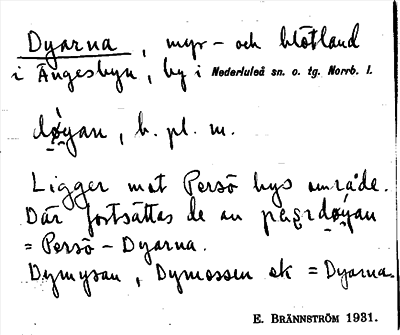 Dyarna, myr- och blötland
i Ängesbyn, by i Nederluleå sn. o. tg. Norrb. l.
dǿyan, b. pl. m.
Ligger mot Persö bys område.
Där fortsättas de av
= Persö-Dyarna.
Dymyran, Dymossen ek = Dyarna.
E. BRÄNNSTRÖM 1931.